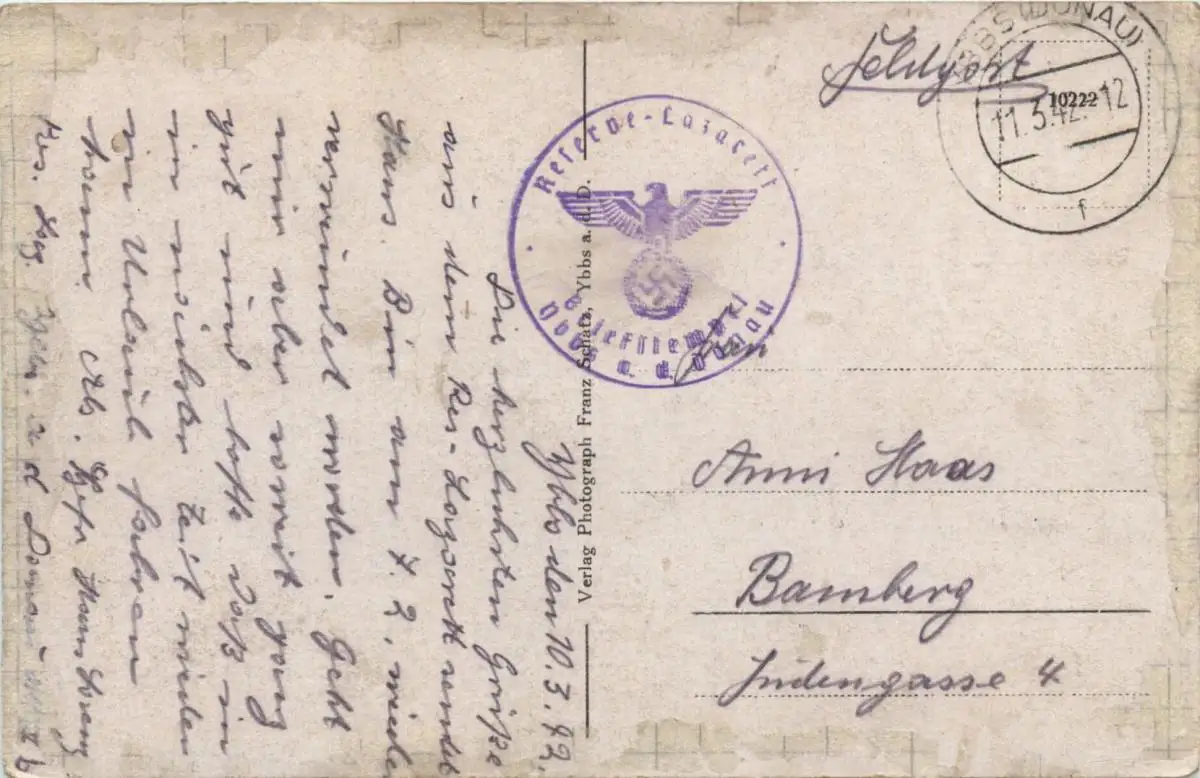 Feldpost
YBBS (DONAU)
10222
11.3.42.-12
f
Reserve-Lazarett
Briefstempel
Ybbs a. d. Donau
Verlag Photograph Franz Schatz, Ybbs a. d. D.
Anni Haas
Bamberg
Judengasse 4
Ybbs den 10.3.42.
Die herzlichsten Grüße
aus dem Res-Lazarett sendet
Hans. Bin am 7.2. wieder
verwundet worden. Geht
mir aber soweit ganz
gut und hoffe daß ich
in nächster Zeit wieder
in Urlaub fahren
kann. Abs. Gefr. Hans
Res. Laz. Ybbs a d Donau